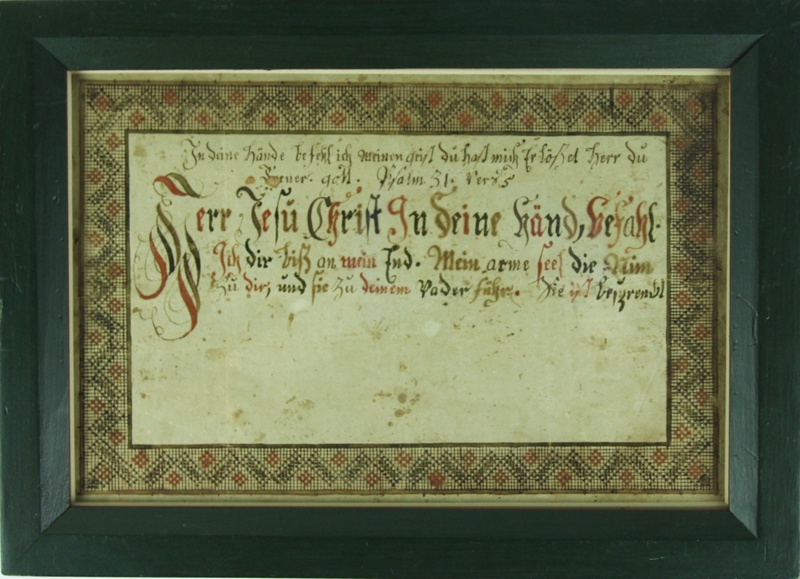 In deine Hände befehl ich meinen geist du hast mich Erlößet Herr du
Treuer. gott. Psalm 31. Vers 5
Herr Jesu Christ In deine händ, befahl.
Ich dir biß an mein End. Mein arme seel die Nim
Zu dir, und sie zu deinem Vader führe. Die ist